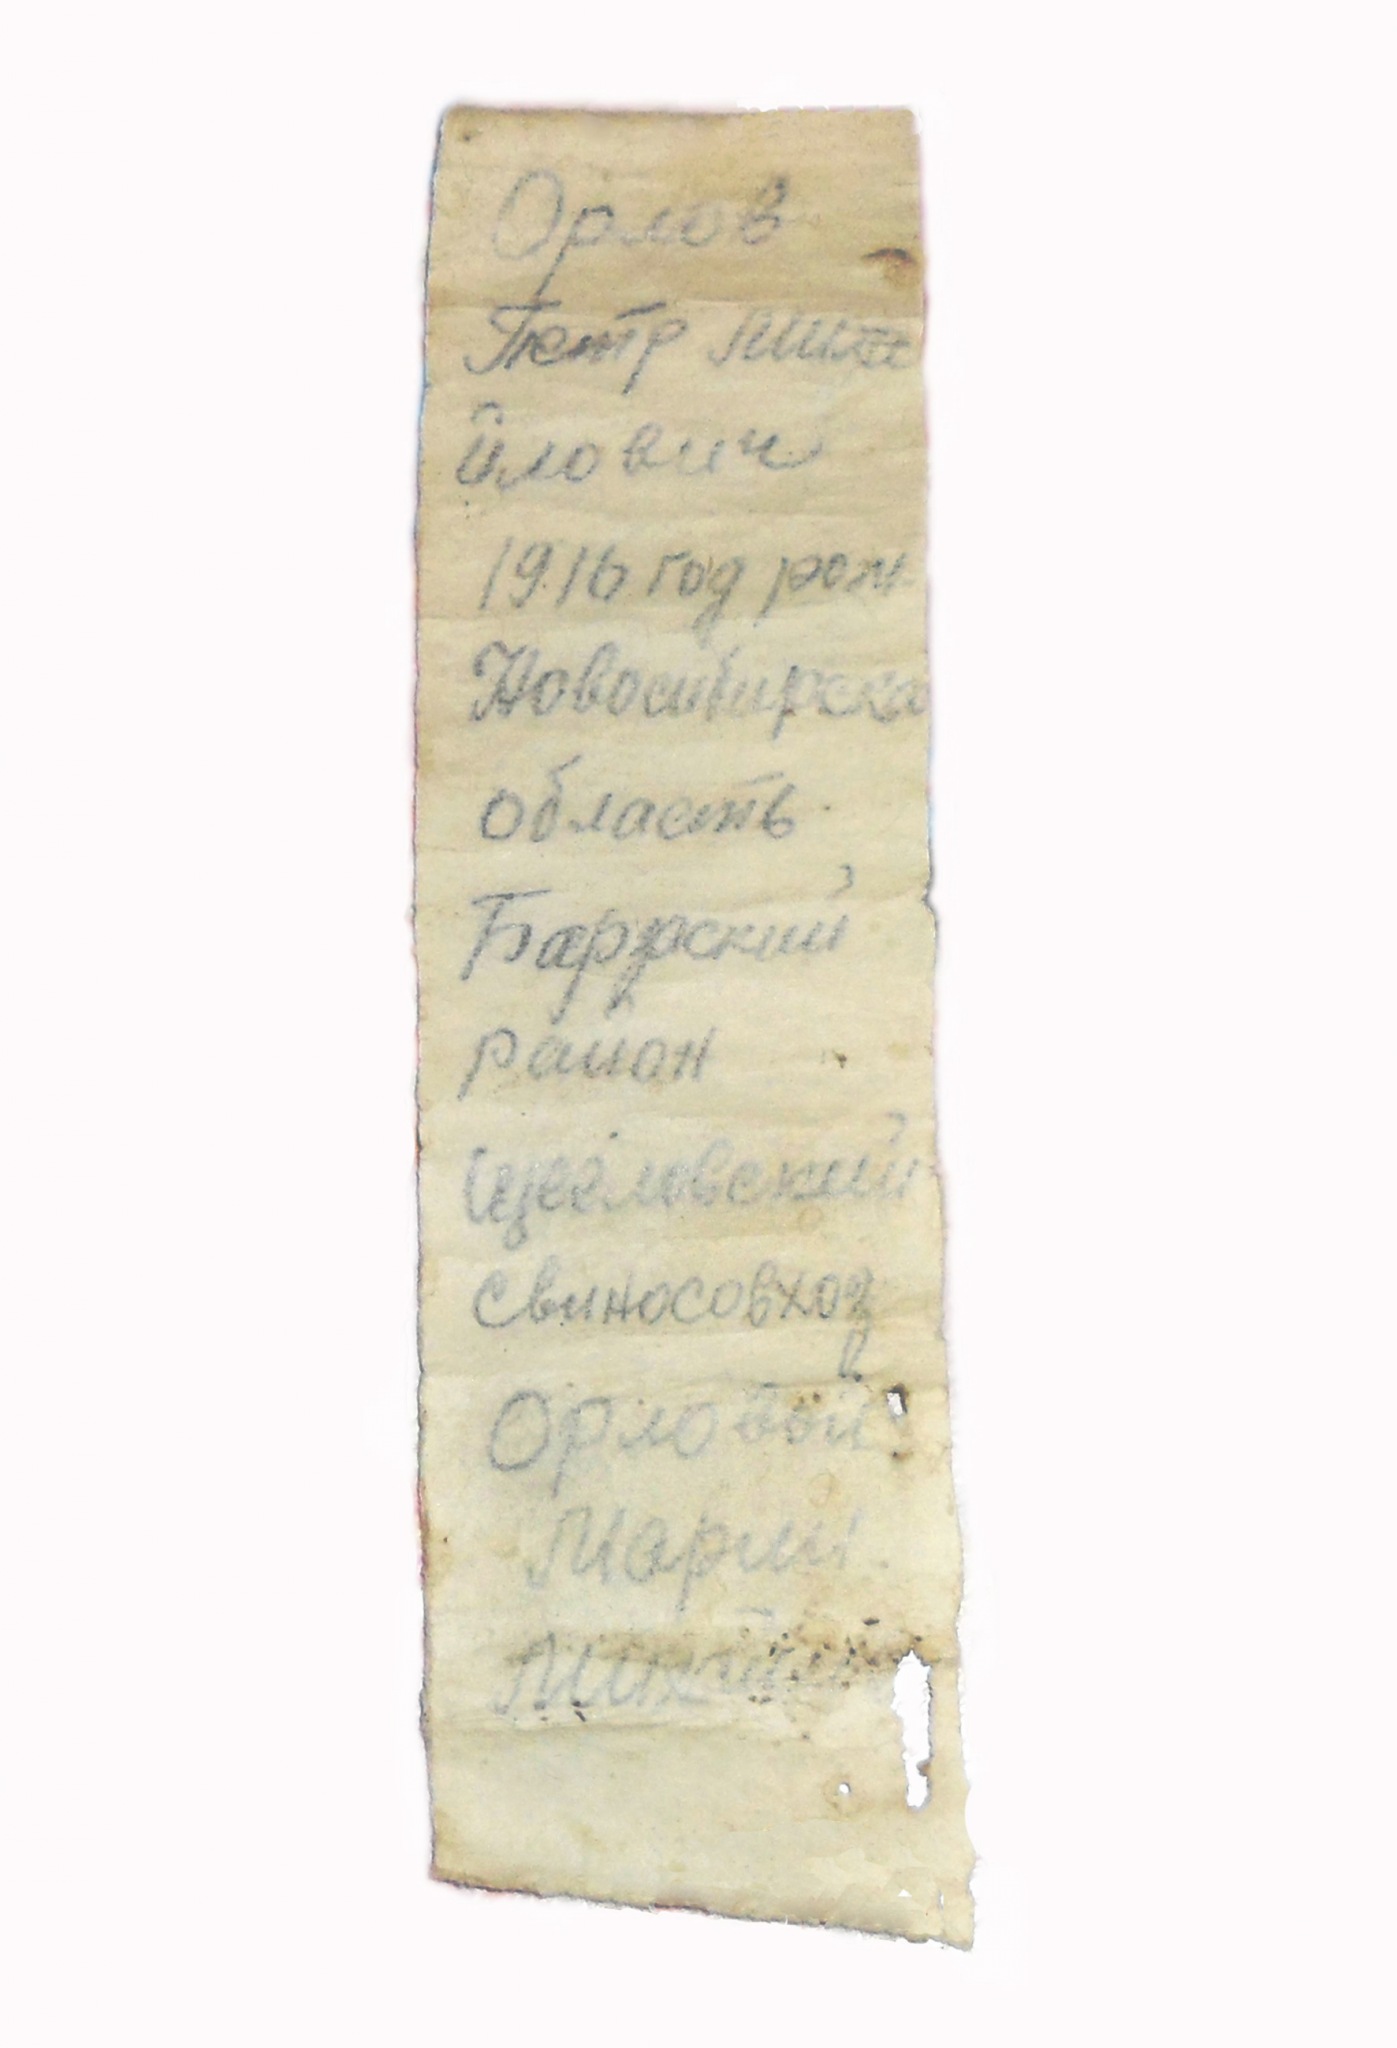 Орлов
Петр Миха
йлович
1916 год рож
Новосибирска
область
Барзский
район
Щегловский
свиносовхоз
Орловой
Марии